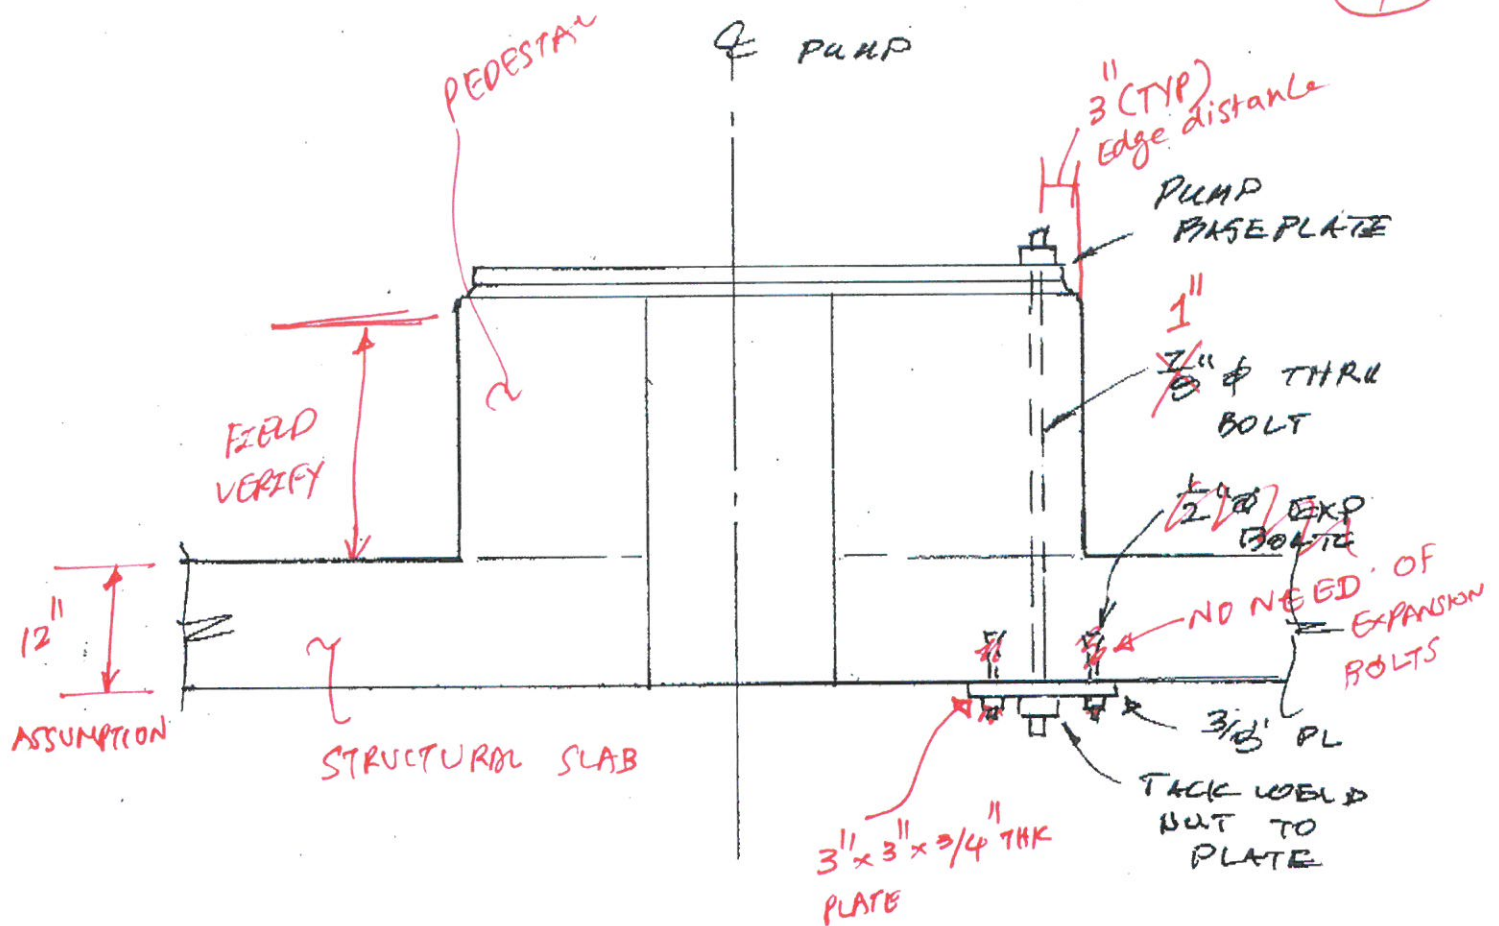 PEDESTAL
℄ PUMP
3" (TYP)
Edge distance
PUMP
BASEPLATE
1"
7/8" ϕ THRU
BOLT
FIELD
VERIFY
1/2" ϕ EXP
BOLTS
NO NEED OF
EXPANSION
BOLTS
12"
ASSUMPTION
STRUCTURAL SLAB
3/8" PL
TACK WELD
NUT TO
PLATE
3" x 3" x 3/4" THK
PLATE